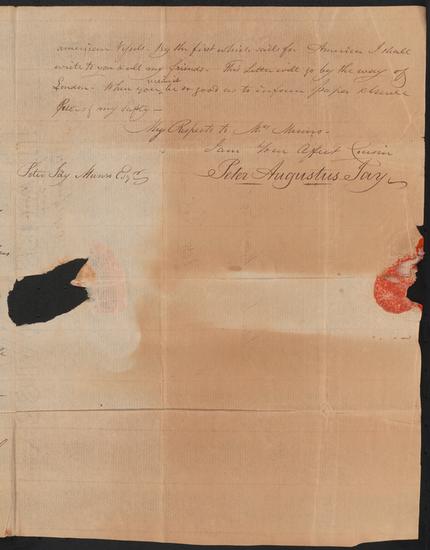 american Vessels. By the first which sails for America I shall
write to you & all my friends. This Letter will go by the way of
London. When you receive it be so good as to inform papa &
of my safety —
My Respects to Mrs Munro.
I am Your Affect Cousin
Peter Jay Munro Esqr
Peter Augustus Jay